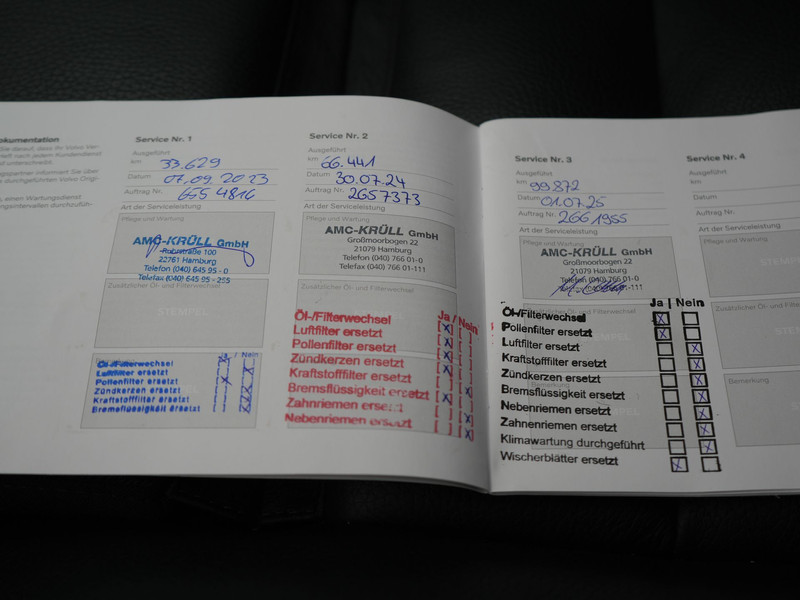 okumentation
Sie darauf, dass Ihr Volvo Ver-
Heft nach jedem Kundendienst
nd unterschreibt.
gspartner informiert Sie über
s durchgeführten Volvo Origi-
, einen Wartungsdienst
ungsintervallen durchzufüh-
Service Nr. 1
Ausgeführt
km 33.629
Datum 07.09.2023
Auftrag Nr. 655 4816
Art der Serviceleistung
Pflege und Wartung
AMC-KRÜLL GmbH
Ruhrstraße 100
22761 Hamburg
Telefon (040) 645 95 - 0
Telefax (040) 645 95 - 255
Zusätzlicher Öl- und Filterwechsel
STEMPEL
Ja / Nein
Öl-/Filterwechsel X
Luftfilter ersetzt X
Pollenfilter ersetzt X
Zündkerzen ersetzt X
Kraftstofffilter ersetzt X
Bremsflüssigkeit ersetzt X
Service Nr. 2
Ausgeführt
km 66.441
Datum 30.07.24
Auftrag Nr. 2657373
Art der Serviceleistung
Pflege und Wartung
AMC-KRÜLL GmbH
Großmoorbogen 22
21079 Hamburg
Telefon (040) 766 01-0
Telefax (040) 766 01-111
Zusätzlicher Öl- und Filterwechsel
Ja / Nein
Öl-/Filterwechsel
Luftfilter ersetzt
Pollenfilter ersetzt
Zündkerzen ersetzt
Kraftstofffilter ersetzt
Bremsflüssigkeit ersetzt
Zahnriemen ersetzt
Nebenriemen ersetzt
Service Nr. 3
Ausgeführt
km 99872
Datum 01.07.25
Auftrag Nr. 2661955
Art der Serviceleistung
Pflege und Wartung
AMC-KRÜLL GmbH
Großmoorbogen 22
21079 Hamburg
Telefon (040) 766 01-0
-111
Ja | Nein
Öl-/Filterwechsel X
Pollenfilter ersetzt X
Luftfilter ersetzt X
Kraftstofffilter ersetzt X
Zündkerzen ersetzt X
Bremsflüssigkeit ersetzt X
Nebenriemen ersetzt X
Zahnriemen ersetzt X
Klimawartung durchgeführt X
Wischerblätter ersetzt X
Service Nr. 4
Ausgeführt
km
Datum
Auftrag Nr.
Art der Serviceleistung
Pflege und Wartung
STEMPEL
Zusätzlicher Öl- und Filterwechsel
STEMPEL
Bemerkung
STEMPEL